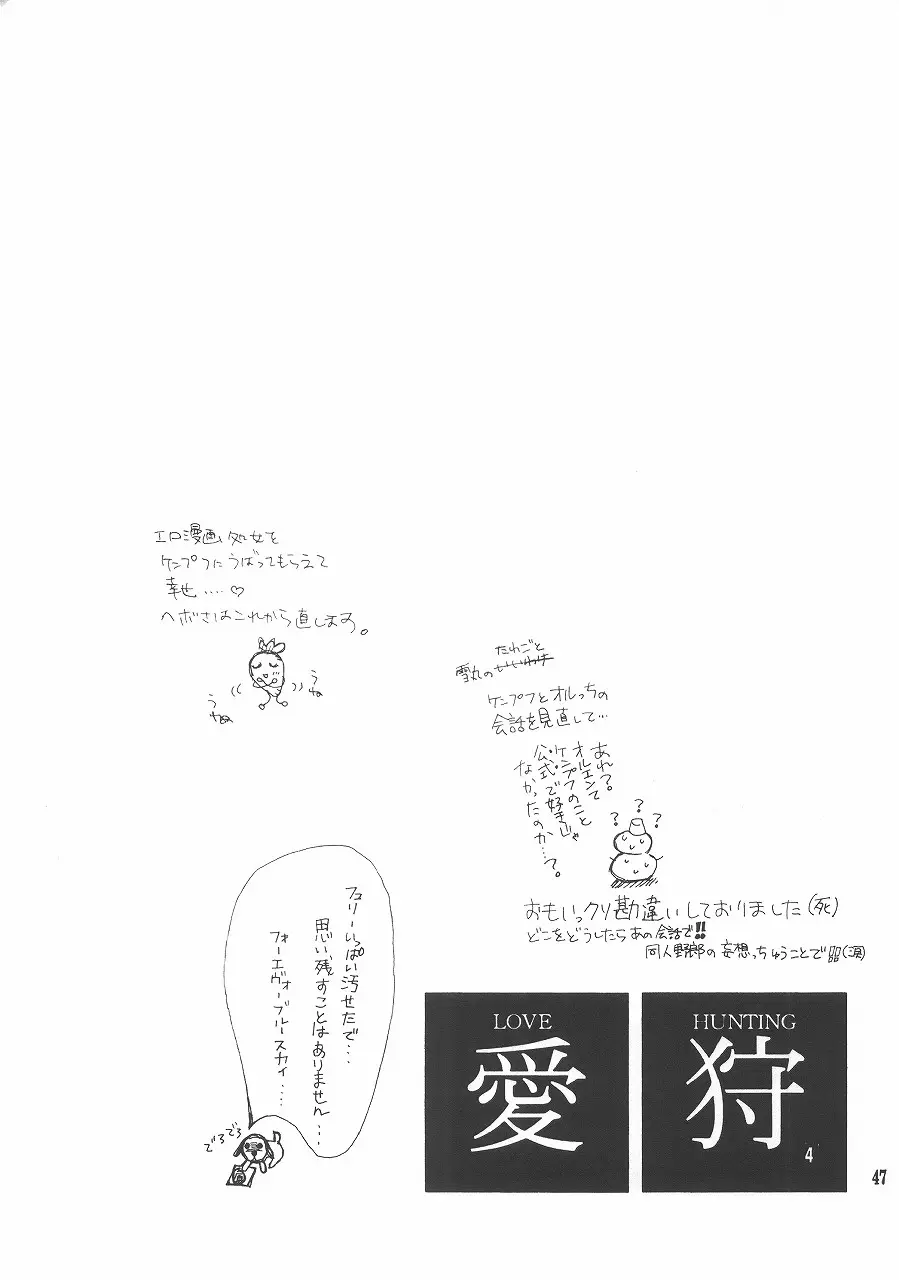 エロ漫画処女を
ケンプフにうばってもらえて
幸せ....♡
ヘボさはこれから直します。
うねうね
うねうね
たわごと
雪丸のいいわけ
ケンプフとオルっちの
会話を見直して...
あれ?
オルエンて
ケンプフのこと
公式で好きじゃ
なかったのか...?。
? ? ?
おもいっクソ勘違いしておりました(死)
どこをどうしたらあの会話で!!
同人野郎の妄想っちゅうことで(涙)
フュリーいっぱい汚せたで...
思い残すことはありません...
フォーエヴァーブルースカイ....
でろでろ
LOVE
愛
HUNTING
狩
4
47